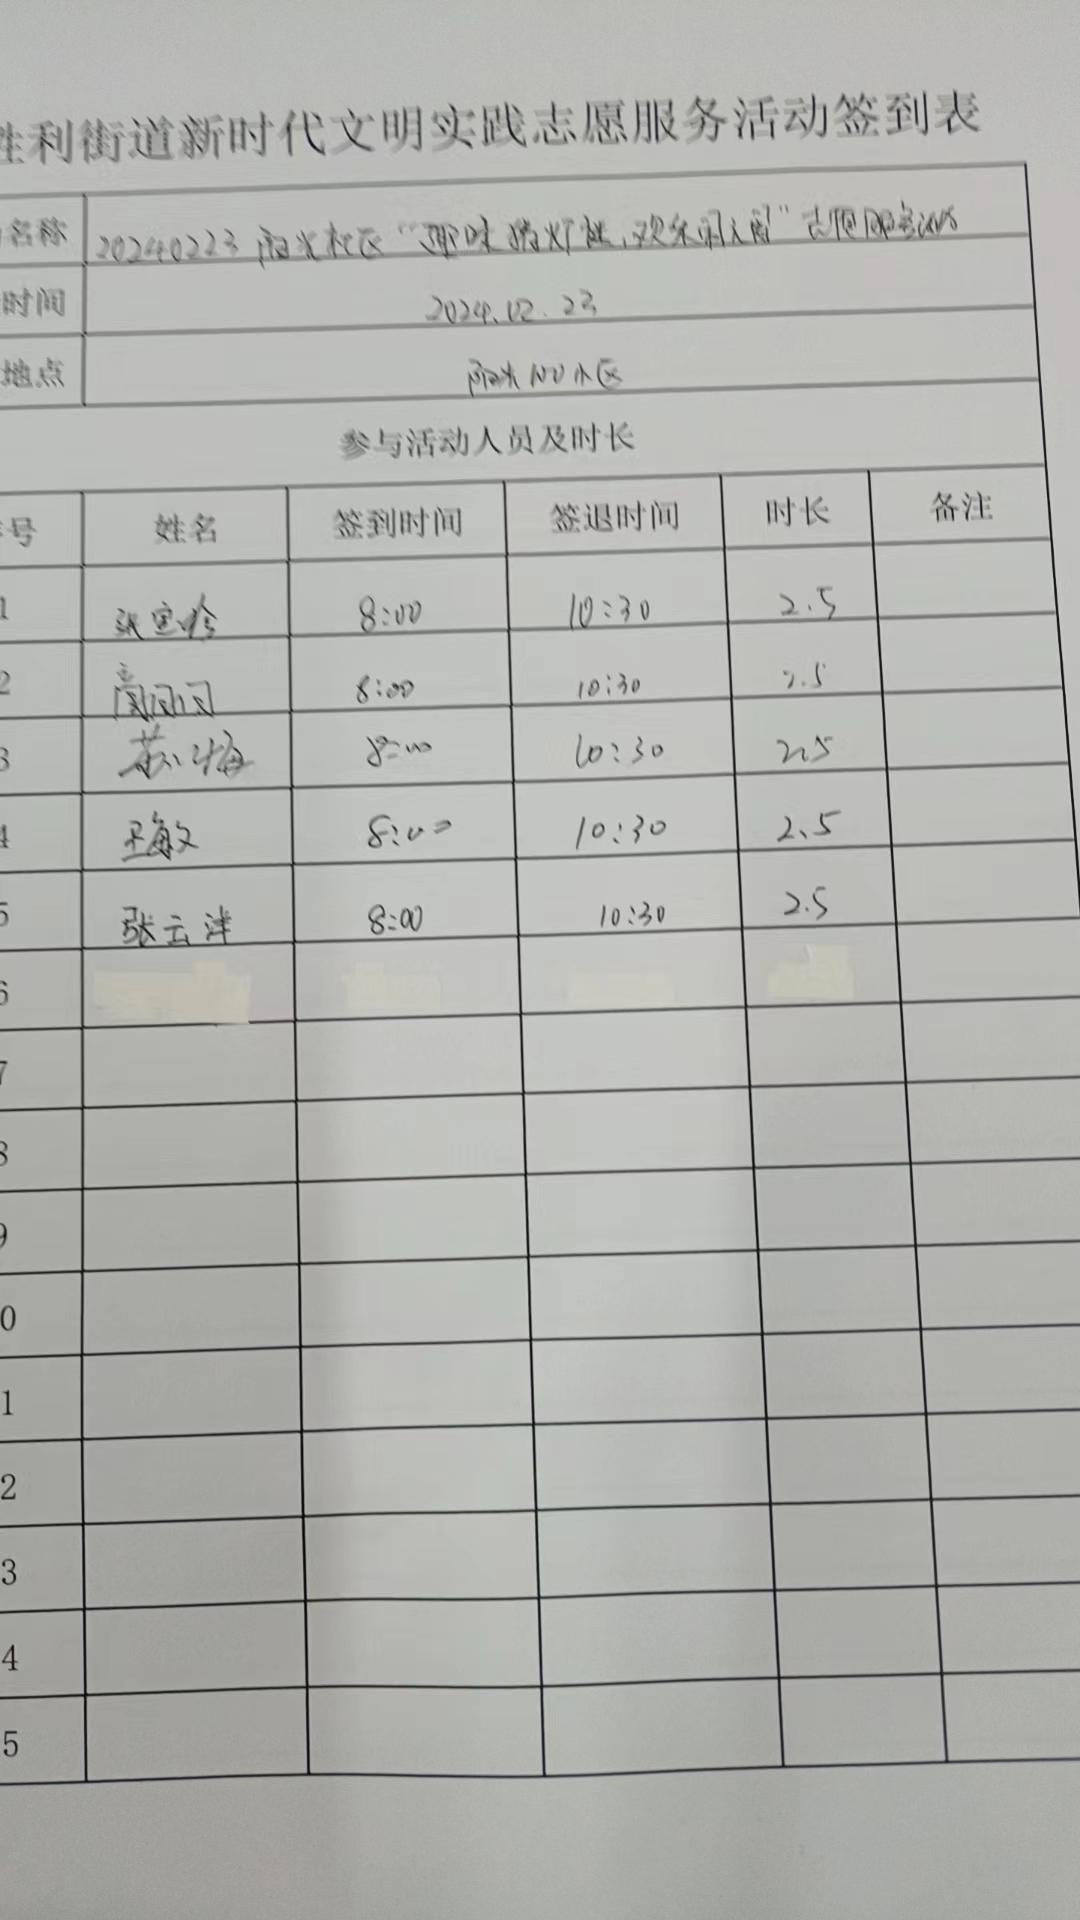 胜利街道新时代文明实践志愿服务活动签到表
名称 20240223 阳光社区“趣味猜灯谜,欢乐闹人间”志愿服务活动
时间 2024.02.23
地点 阳光100小区
参与活动人员及时长
号 姓名 签到时间 签退时间 时长 备注
1 张 8:00 10:30 2.5
2 8:00 10:30 2.5
3 8:00 10:30 2.5
4 王敏文 8:00 10:30 2.5
5 张云洋 8:00 10:30 2.5
6
7
8
9
0
1
2
3
4
5